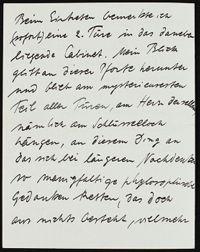 Beim Eintreten bemerkte ich
(sofort) eine 2. Türe in das daneben
liegende Cabinet. Mein Blick
glitt an dieser Pforte herunter
und blieb am mysteriösesten
Teil aller Türen, am Herz derselben
nämlich am Schlüsselloch
hängen, an diesem Ding an
das sich bei längerem Nachdenken
so mannigfaltige phylosophische
Gedanken ketten, das doch
aus nichts besteht, vielmehr